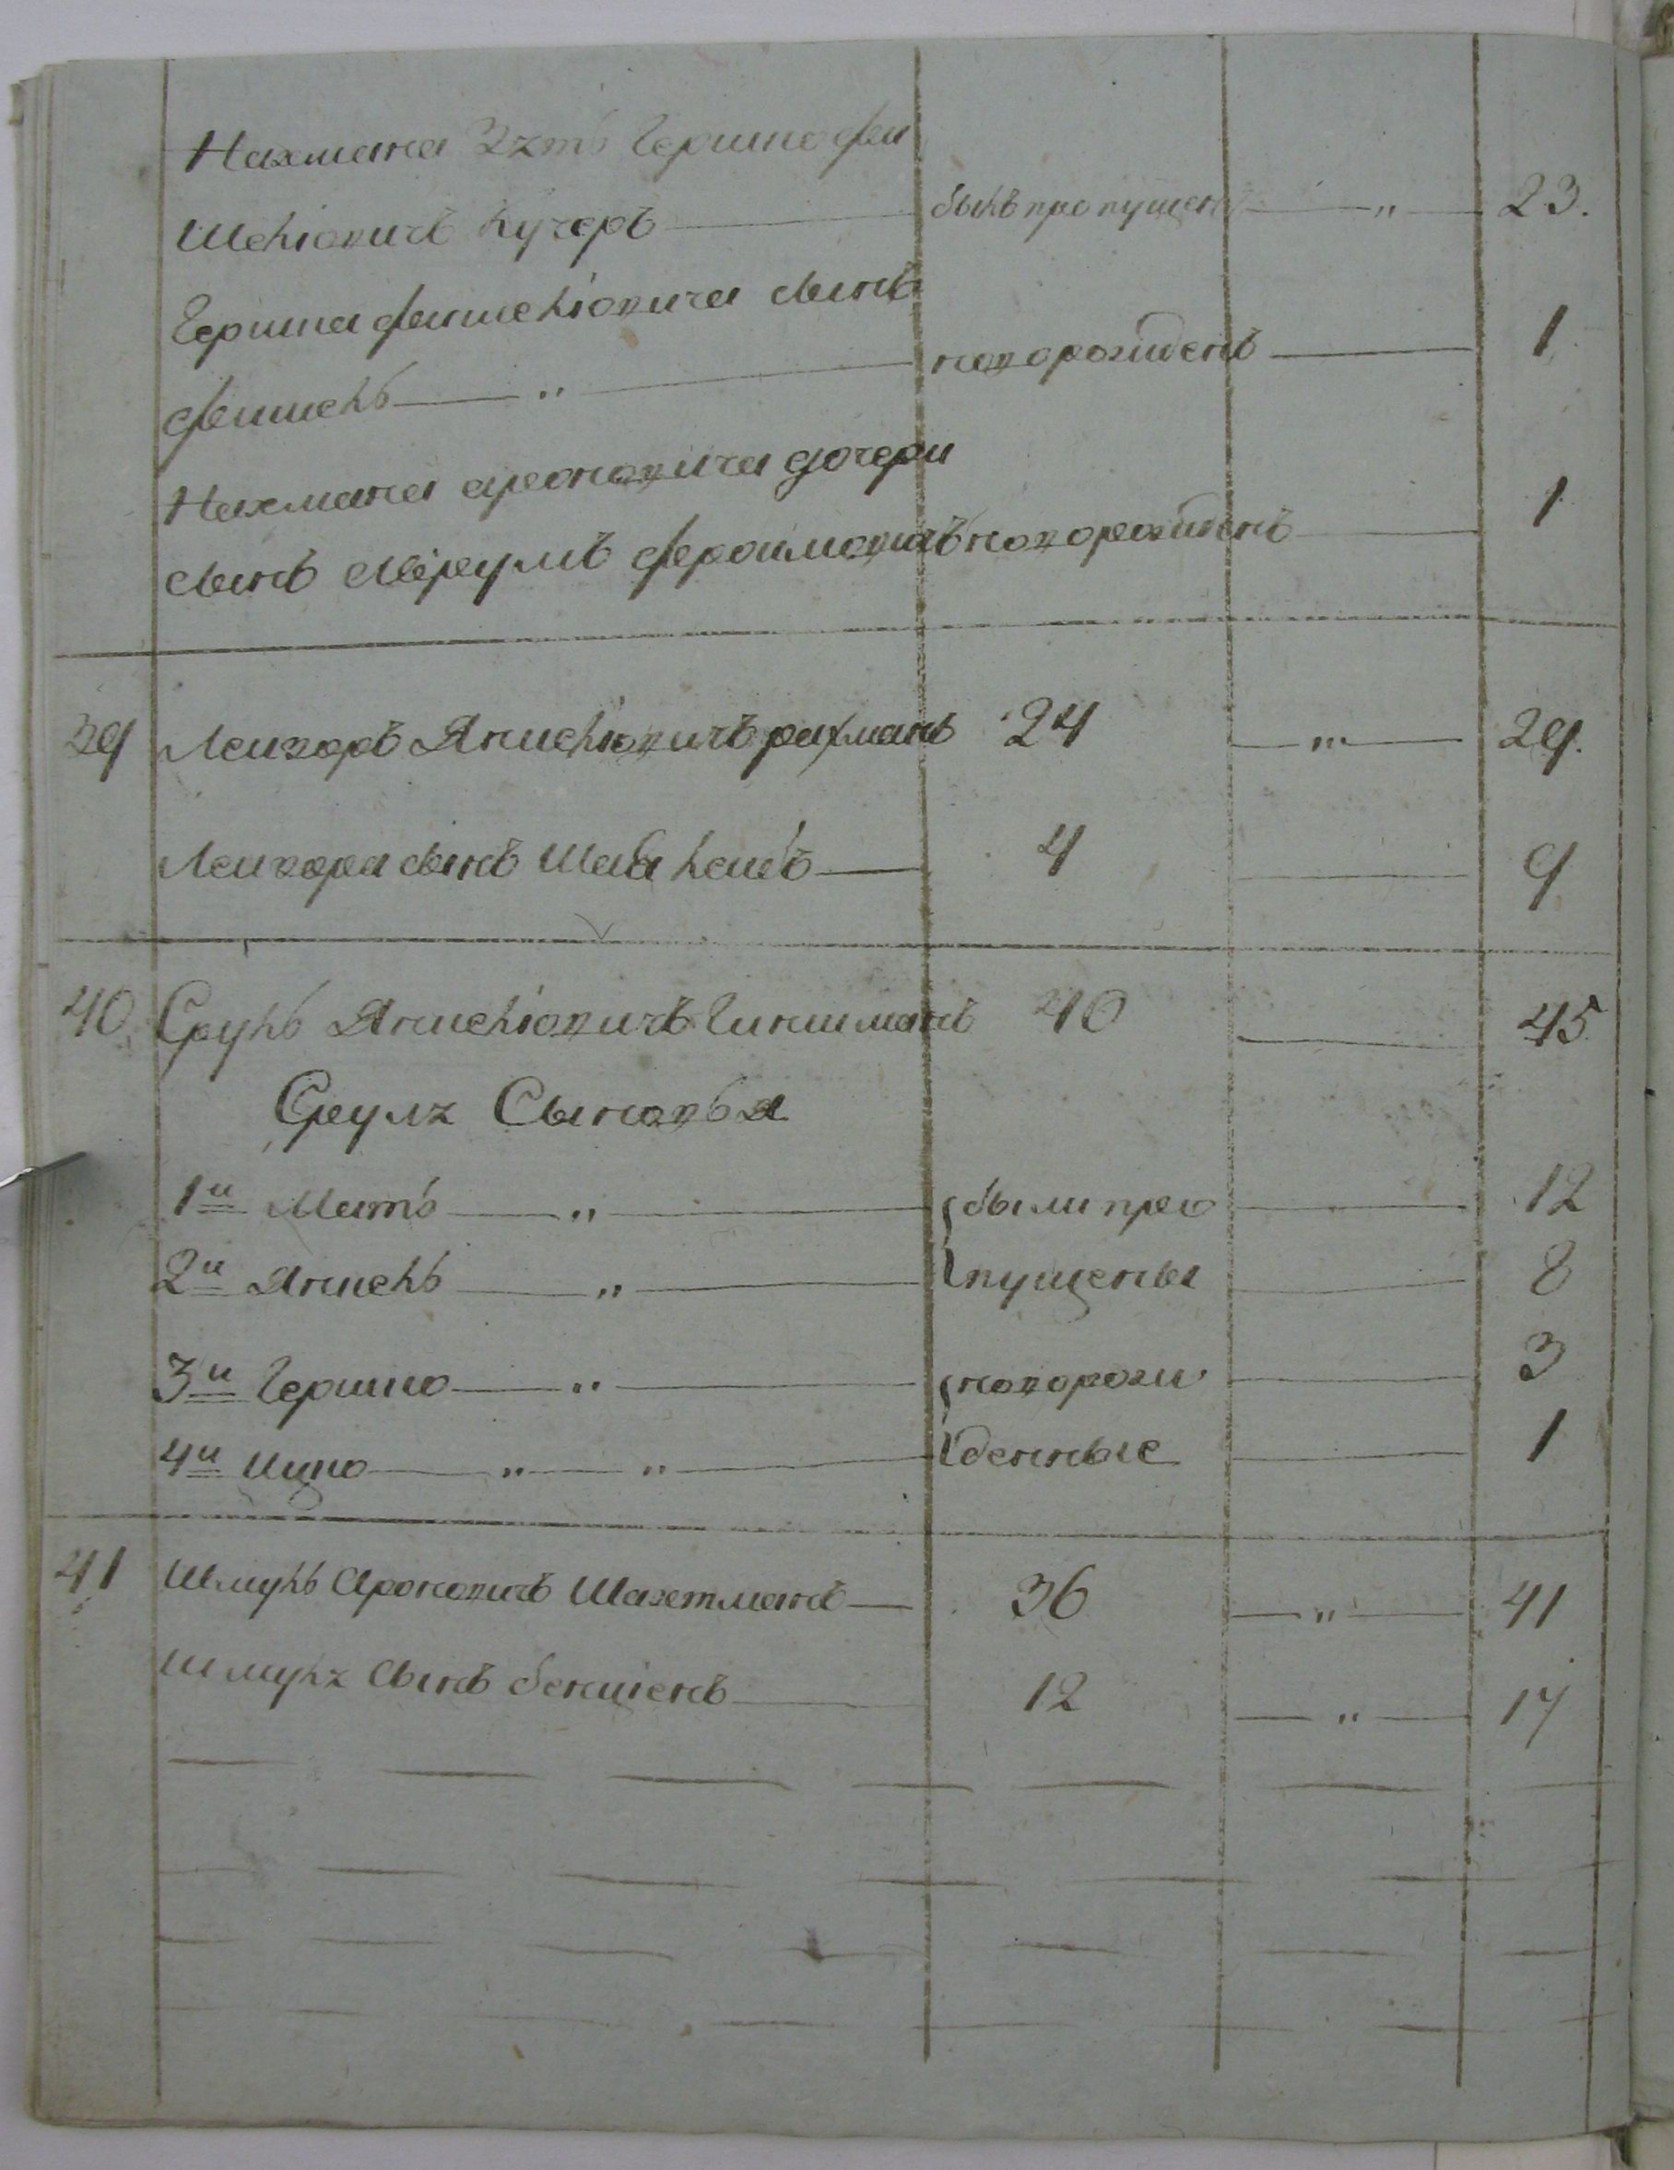 Нахмана Зять Гершко фаи
шеліовичъ кучеръ былъ пропущенъ " 23.
Гершка фаишеліовича сынъ
фаишель " новорожденъ 1
Нахмана ароновича дочери
сынъ Сруль фроимовичъ новорожденъ 1
39 Лейзоръ Янкеліовичъ рахманъ 24 " 29.
Лейзора сынъ 4 9
40 Сруль Янкеліовичъ Гикиманъ 40 45
Сруля Сыновья
1й Мать " были про 12
2й Янкель " пущены 8
3й Гершко " новорож 3
4й Ицко " " денные 1
41 Шмуль Ароновичъ Шахтманъ 36 " 41
Шмуля Сынъ бенціенъ 12 " 17